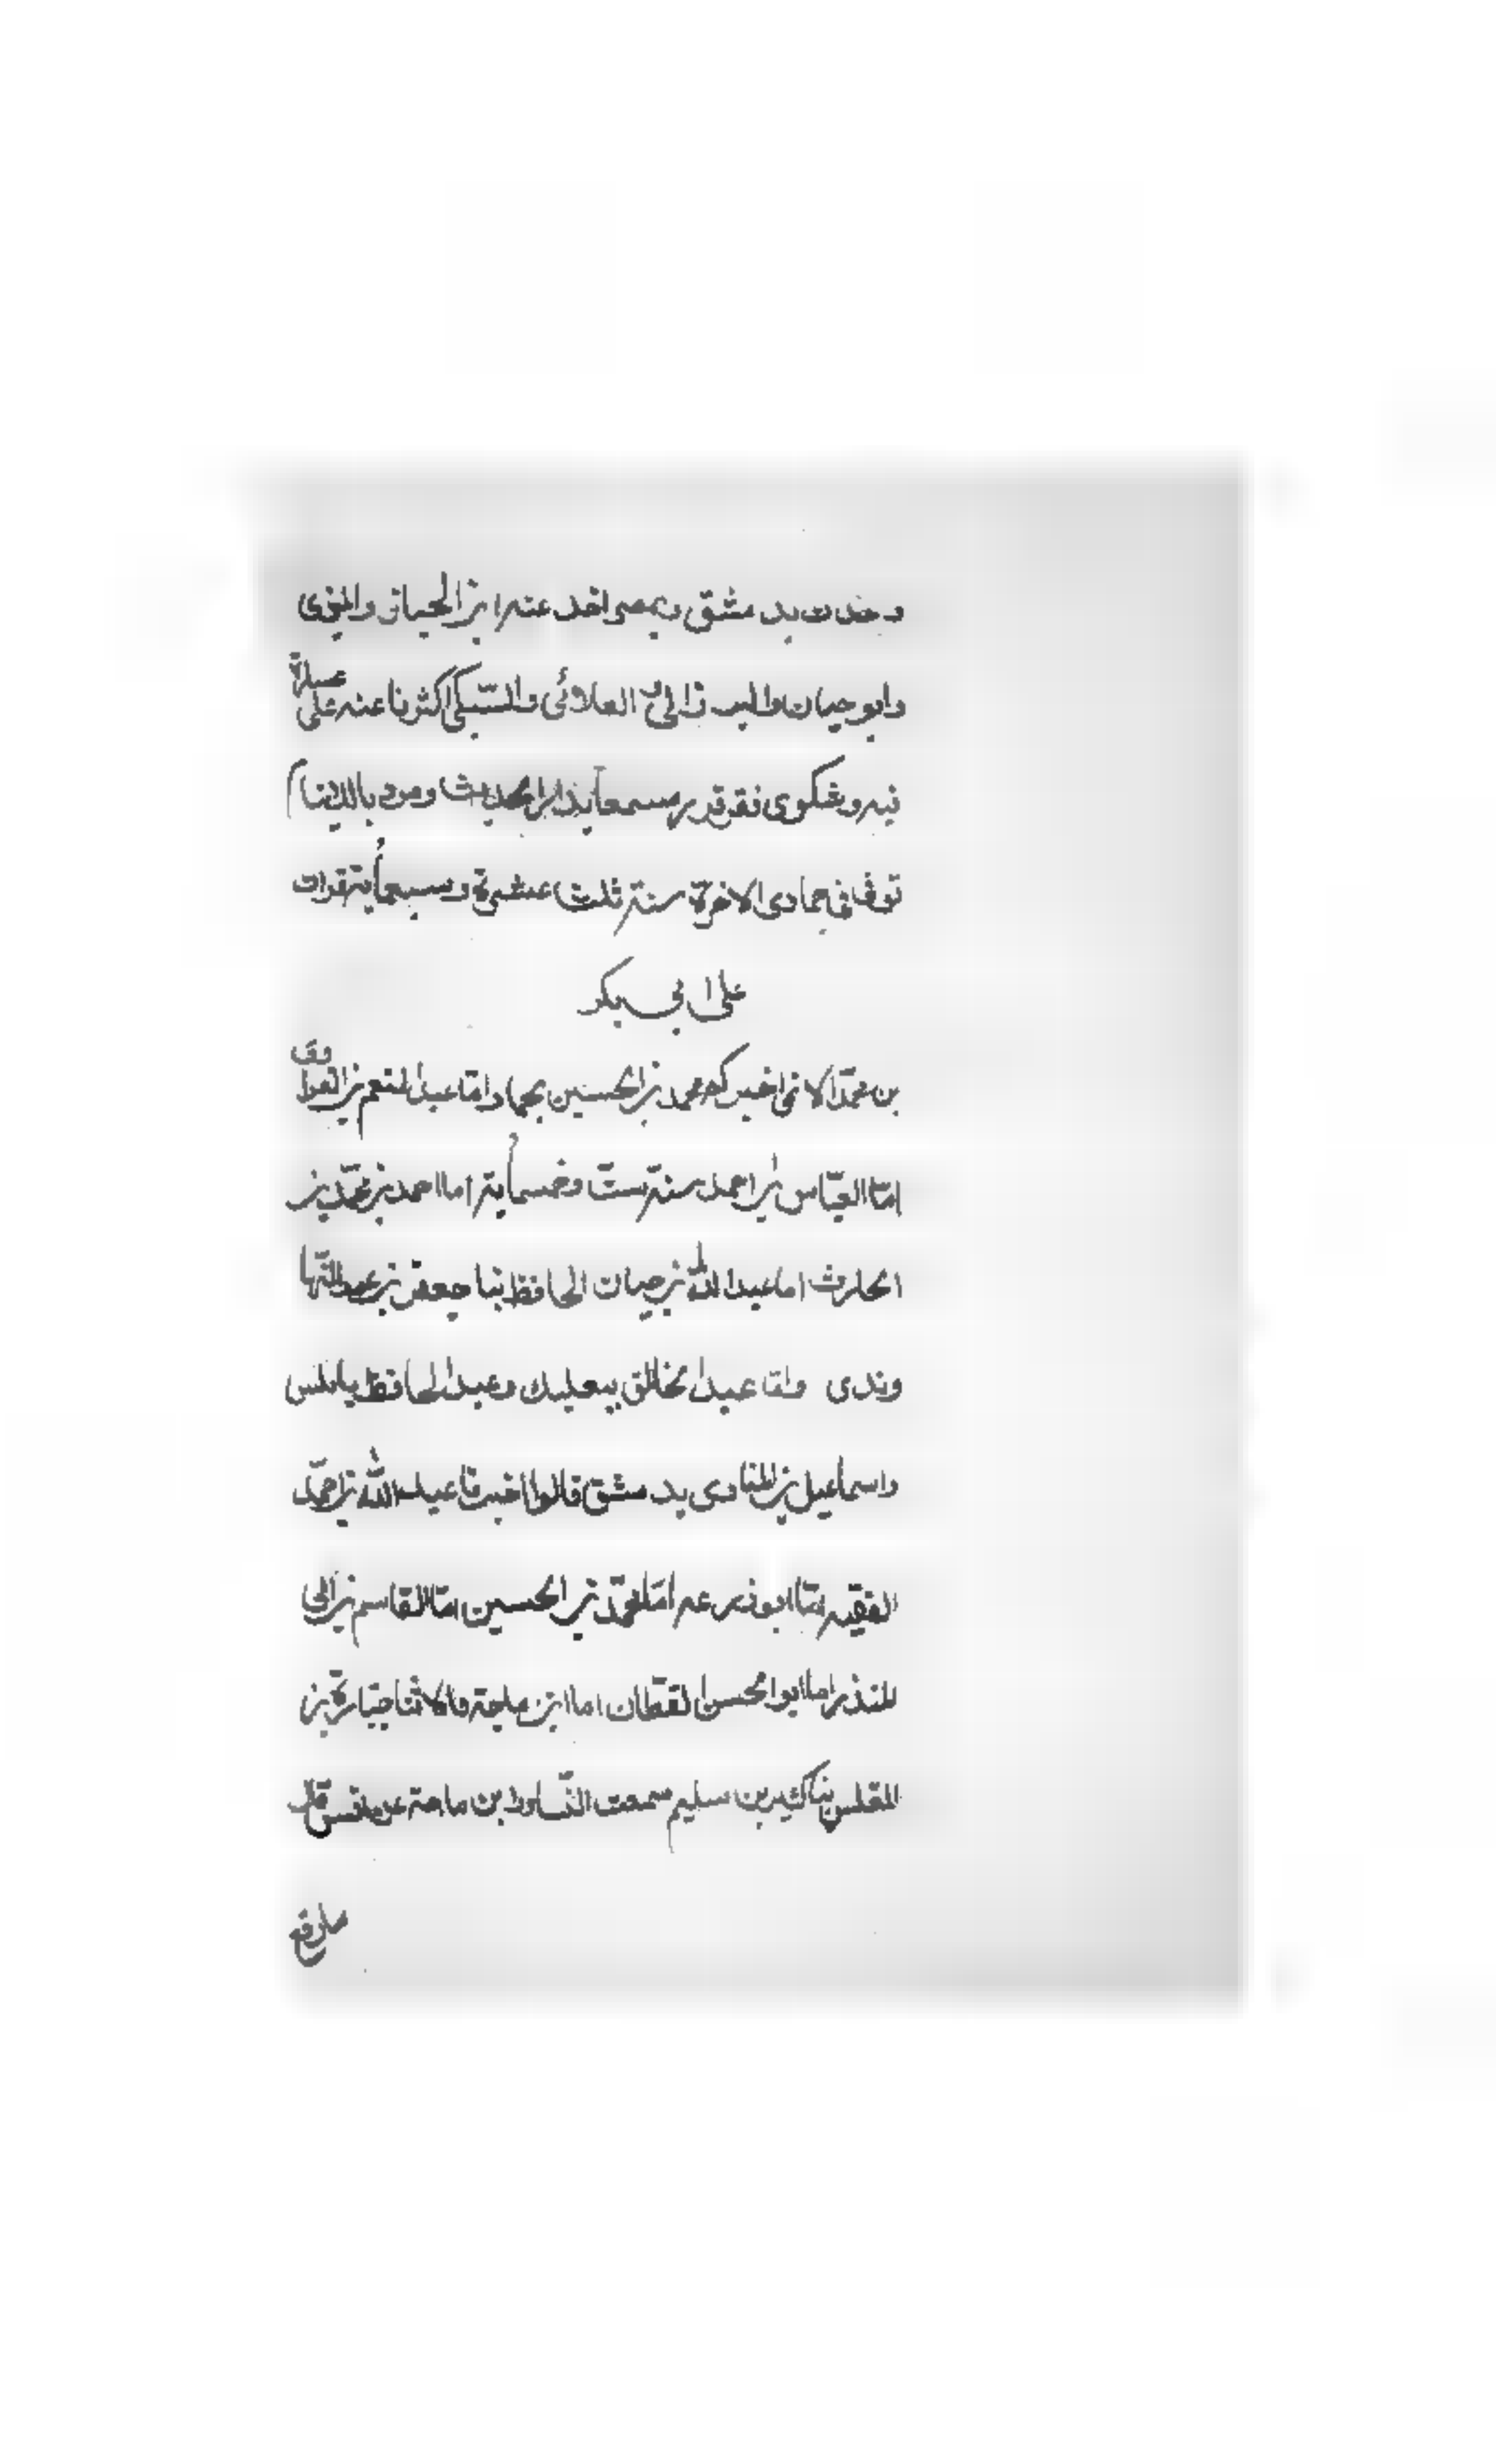 وحدت بد مشق وبمصر اخد عنه ابن الحبانى والمزى
وابو حيان والبرزالى و العلائى والسبكى اكثرنا عنه على عسارة
فيه وشكوى فقر قد سمعا بذا الحديث ومرد بالدنيا
توفى فى جمادى الاخرة سنة ثلث عشرة وسبعمأية قرات
على ابى بكر
بن محمد الانمى اخبركم محمد بن الحسين بحما وانا عبد المنعم بن الفراوى
انا العباس بن احمد سنة ست وخمسمأية انا احمد بن محمد بن
الحارث انا عبد الله بن حيان الحافظ ثنا جعفر بن عبد الله النها
وندى وانا عبد الخالق ببعلبك وعبد الحافظ بنابلس
واسماعيل بن المنادى بد مشق قالوا اخبرنا عبد الله بن احمد
الفقيه انا ابو زرعه انا محمد بن الحسين انا القاسم بن ابى
المنذر انا ابو الحسن القطان انا ابن ماجة قالا ثنا جبارة بن
المغلس ثنا كثير بن سليم سمعت انسا وابن ماجة عن انس قال